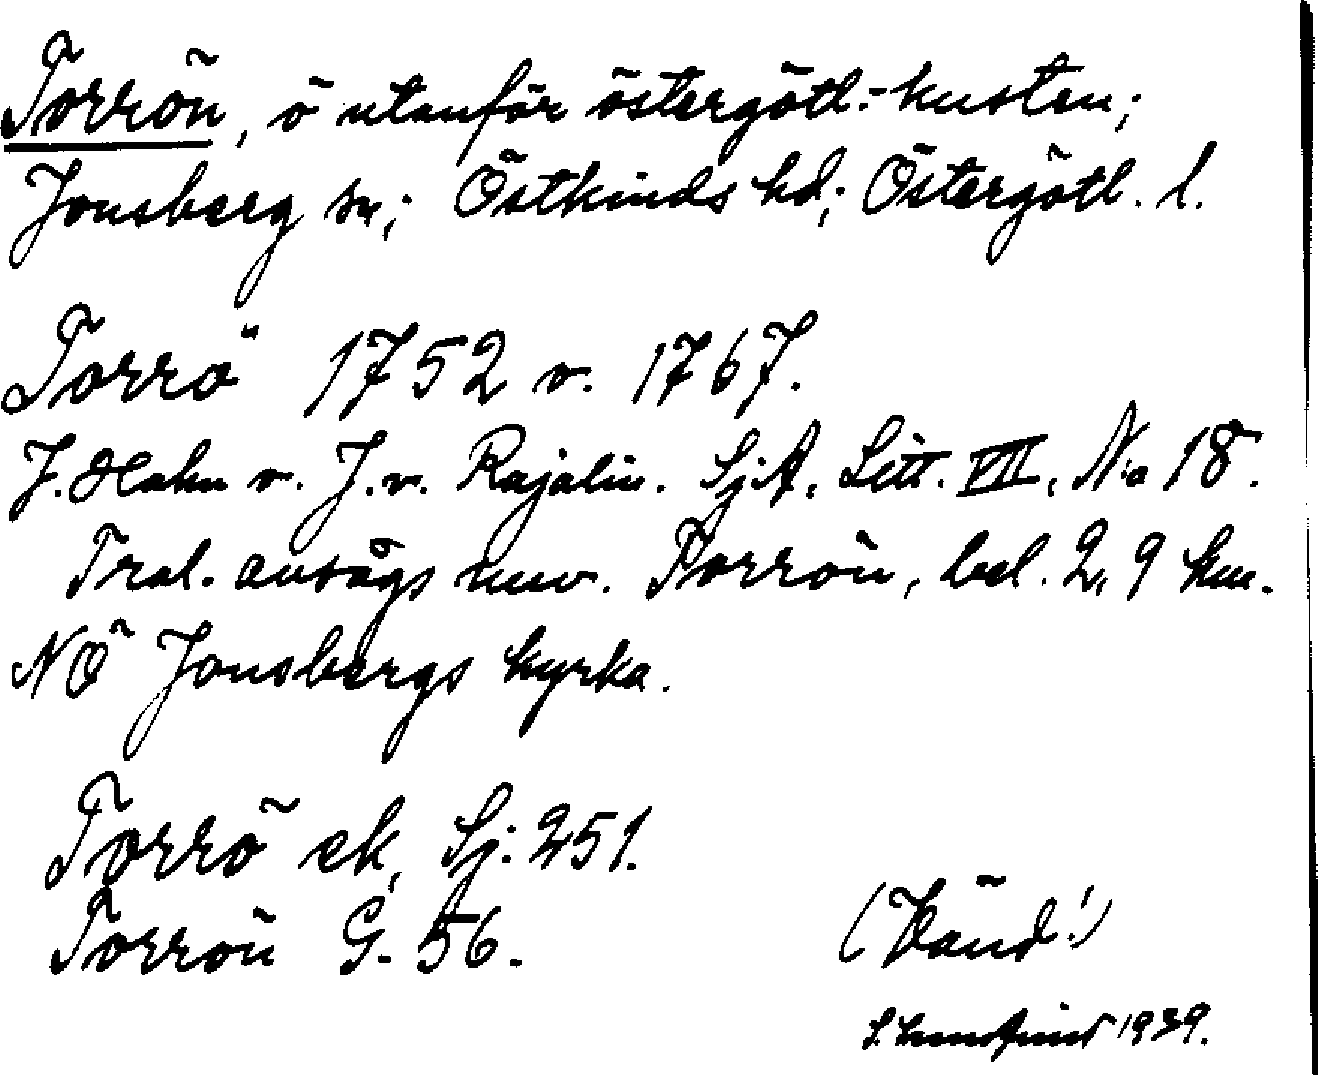 Torrön, ö utanför östergötl.-kusten;
Jonsberg sn; Östkinds hd; Östergötl. l.
Torrö 1752 o. 1767.
J. Hahn o. J. v. Rajalin. SjA, Litt. VII, N:o 18.
Trol. avsågs nuv. Torrön, bel. 2,9 km.
NÖ Jonsbergs kyrka.
Torrö ek, Sj. 251.
Torrön G. 56.
(Vänd!)
1939.